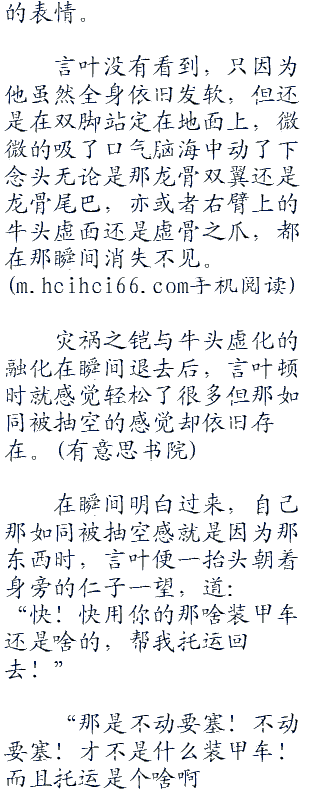 的表情。
言叶没有看到，只因为
他虽然全身依旧发软，但还
是在双脚站定在地面上，微
微的吸了口气脑海中动了下
念头无论是那龙骨双翼还是
龙骨尾巴，亦或者右臂上的
牛头虚面还是虚骨之爪，都
在那瞬间消失不见。
(m.hcihci66.com手机阅读)
灾祸之铠与牛头虚化的
融化在瞬间退去后，言叶顿
时就感觉轻松了很多但那如
同被抽空的感觉却依旧存
在。(有意思书院)
在瞬间明白过来，自己
那如同被抽空感就是因为那
东西时，言叶便一抬头朝着
身旁的仁子一望，道：
“快！快用你的那啥装甲车
还是啥的，帮我托运回
去！”
“那是不动要塞！不动
要塞！才不是什么装甲车！
而且托运是个啥啊